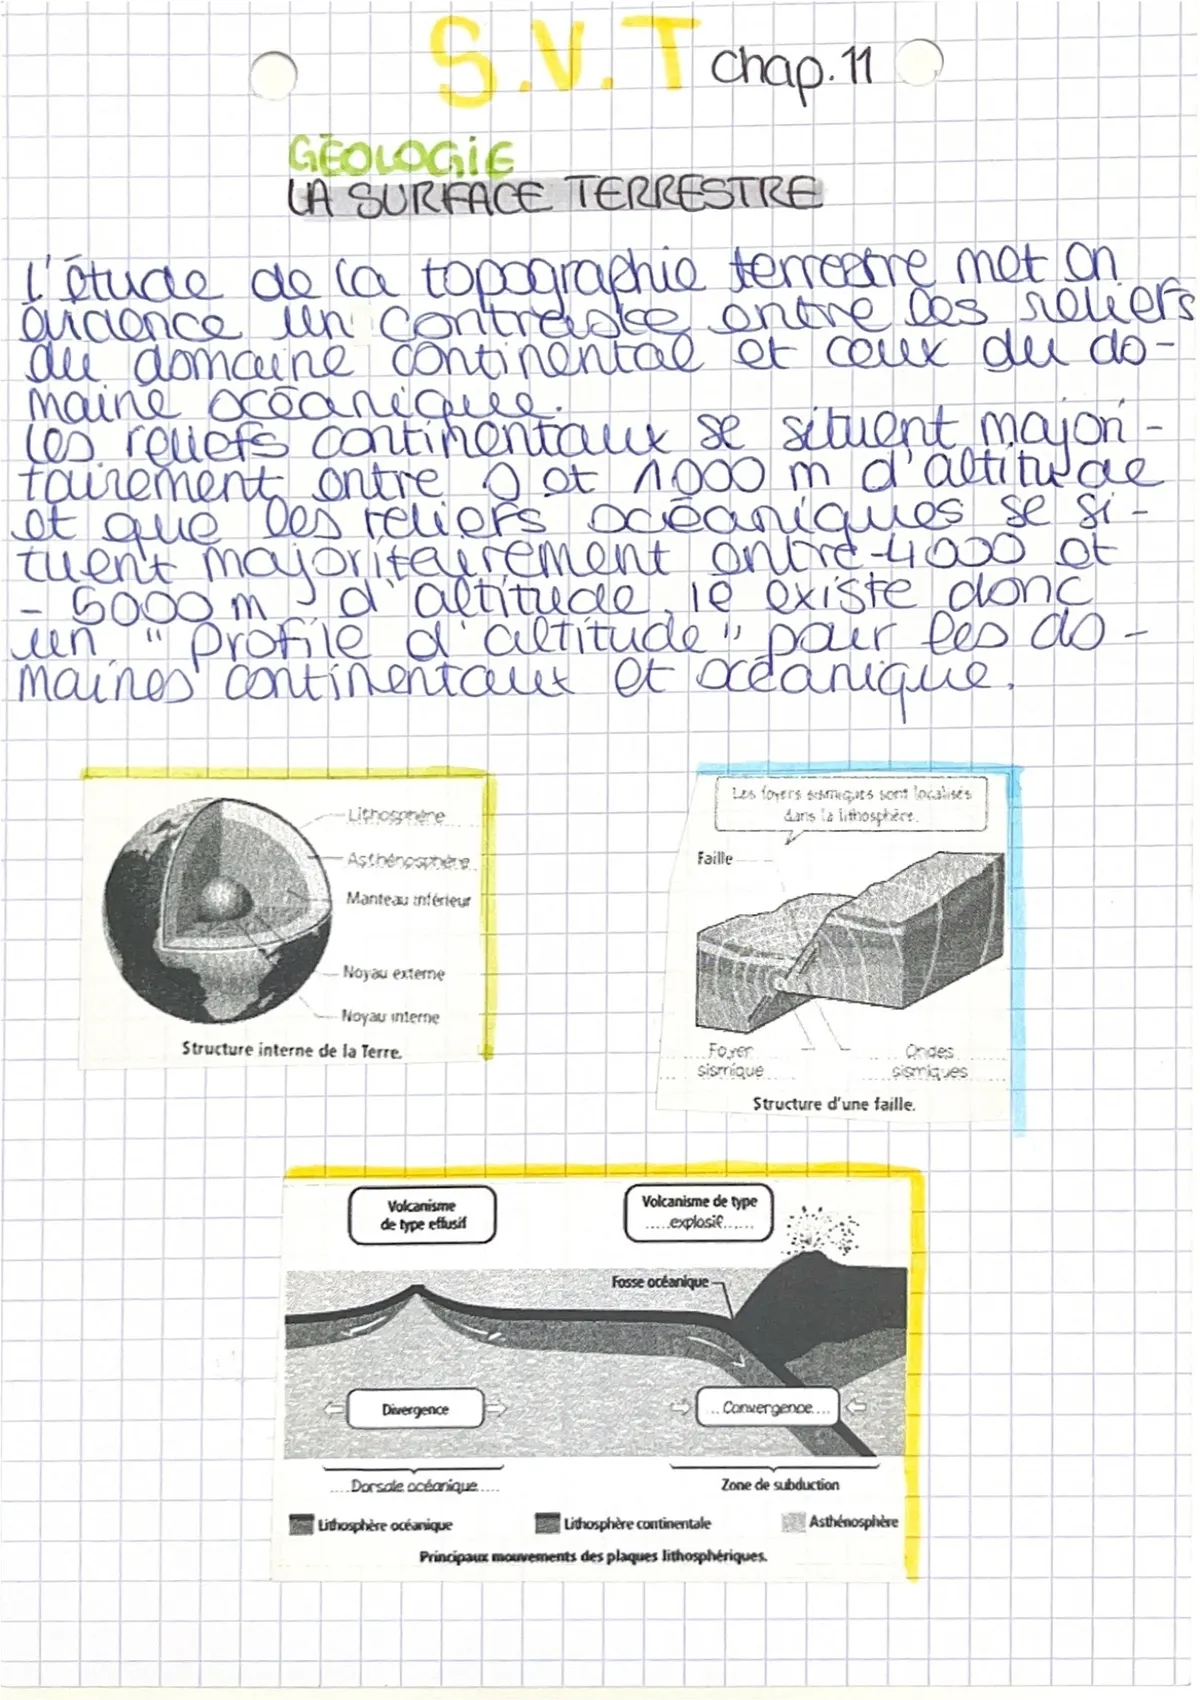 S.V.T chap.11
GÉOLOGIE
LA SURFACE TERRESTRE
l'étude de la topographie terrestre met en
évidence un contraste entre les reliefs
du domaine continental et ceux du do-
maine océanique.
les reliefs continentaux se situent majori-
tairement entre 0 et 1000 m d'altitude
et que les reliefs océaniques se si-
tuent majoritairement entre -4000 et
- 5000 m d'altitude, il existe donc
un " profile d'altitude " pour les do-
maines continentaux et océanique.
Lithosphère
Asthénosphère
Manteau inférieur
Noyau externe
Noyau interne
Structure interne de la Terre.
Les foyers sismiques sont localisés
dans la lithosphère.
Faille
Foyer
sismique
Ondes
sismiques
Structure d'une faille.
Volcanisme
de type effusif
Volcanisme de type
explosif
Fosse océanique
Divergence
Convergence
Dorsale océanique
Zone de subduction
Lithosphère océanique
Lithosphère continentale
Asthénosphère
Principaux mouvements des plaques lithosphériques.